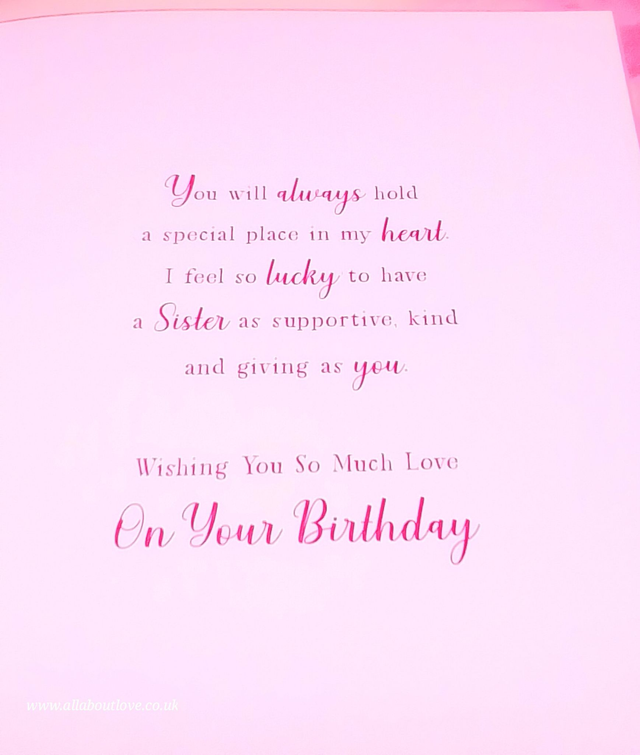 You will always hold
a special place in my heart.
I feel so lucky to have
a Sister as supportive, kind
and giving as you.
Wishing You So Much Love
On Your Birthday
www.allaboutlove.co.uk